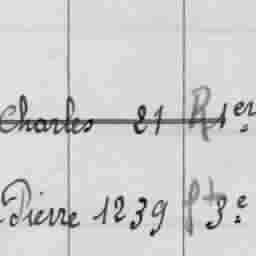 Charles 21 R 1er
Pierre 1239 pt 3e